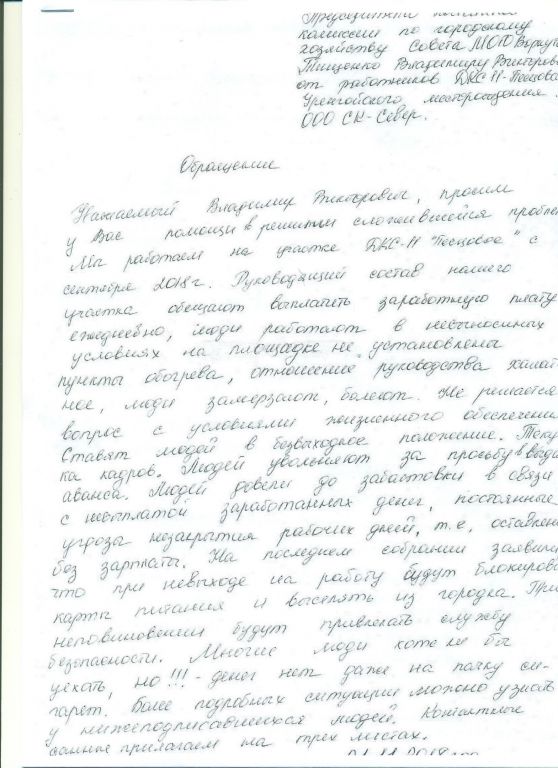 комиссии по городскому
хозяйству Совета МОГО Воркут
Тищенко Владимиру Викторов
от работников БКС Н-Песцова
Уренгойского месторождения.
ООО СК-Север.
Обращение
Уважаемый Владимир Викторович, просим
у Вас помощи в решении сложившейся пробле
Мы работаем на участке БКС-Н "Песцовое" с
сентября 2018г. Руководящий состав нашего
участка обещают выплатить заработную плату
ежедневно, люди работают в невыносимых
условиях на площадке не установлены
пункты обогрева, отношение руководства халат
ное, люди замерзают, болеют. Не решается
вопрос с условиями жизненного обеспечени
Ставят людей в безвыходное положение. Теку
ка кадров. Людей увольняют за просьбу в выда
аванса. Людей довели до забастовки в связи
с невыплатой заработанных денег, постоянные
угрозы незакрытия рабочих дней, т.е. оставлени
без зарплаты. На последнем собрании заявили
что при невыходе на работу будут блокирова
карты питания и выселять из городка. При
неповиновении будут привлекать службу
безопасности. Многие люди хотели бы
уехать, но!!! - денег нет даже на пачку си-
гарет. Более подробных ситуации можно узнать
у нижеподписавшихся людей. Контактные
данные прилагаем на трех листах.